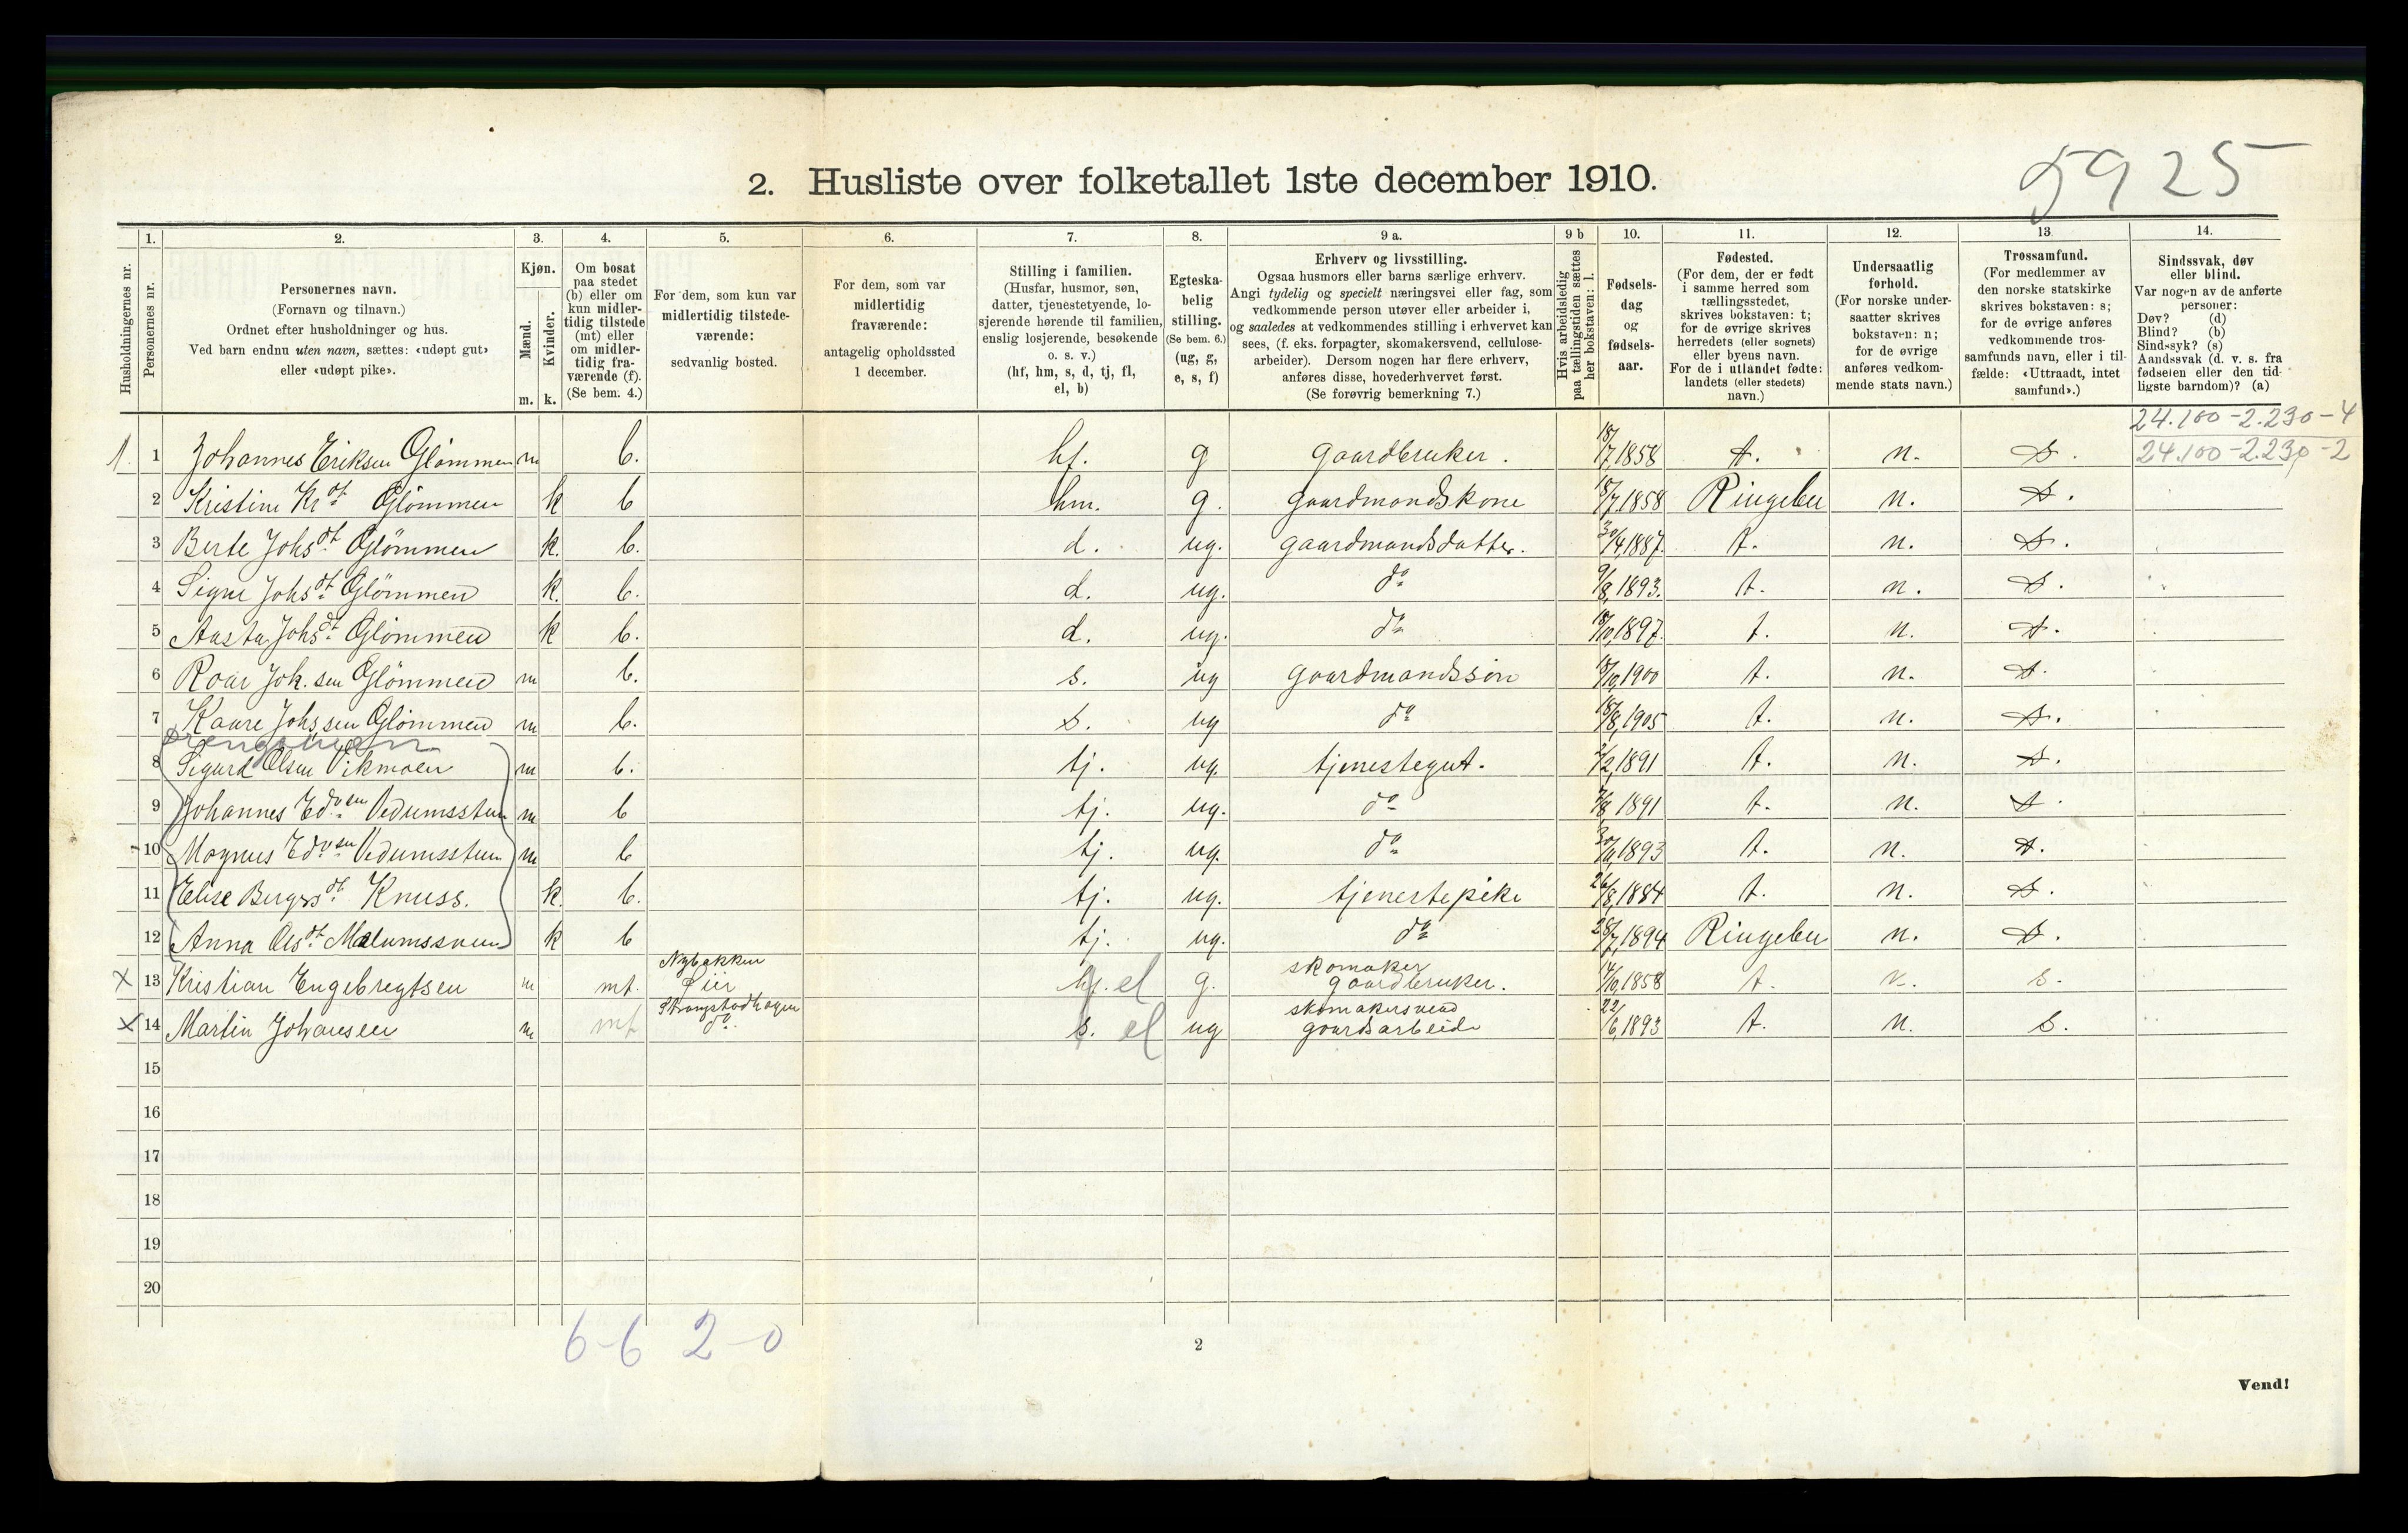 5925
2. Husliste over folketallet 1ste december 1910.
Husholdningernes nr.
1. Personernes nr.
2. Personernes navn.
(Fornavn og tilnavn.)
Ordnet efter husholdninger og hus.
Ved barn endnu uten navn, sættes: «udøpt gut»
eller «udøpt pike».
3. Kjøn.
Mænd. m.
Kvinder. k.
4. Om bosat
paa stedet
(b) eller om
kun midler-
tidig tilstede
(mt) eller
om midler-
tidig fra-
værende (f).
(Se bem. 4.)
5. For dem, som kun var
midlertidig tilstede-
værende:
sedvanlig bosted.
6. For dem, som var
midlertidig
fraværende:
antagelig opholdssted
1 december.
7. Stilling i familien.
(Husfar, husmor, søn,
datter, tjenestetyende, lo-
sjerende hørende til familien,
enslig losjerende, besøkende
o. s. v.)
(hf, hm, s, d, tj, fl,
el, b)
8. Egteska-
belig
stilling.
(Se bem. 6.)
(ug, g,
e, s, f)
9 a. Erhverv og livsstilling.
Ogsaa husmors eller barns særlige erhverv.
Angi tydelig og specielt næringsvei eller fag, som
vedkommende person utøver eller arbeider i,
og saaledes at vedkommendes stilling i erhvervet kan
sees, (f. eks. forpagter, skomakersvend, cellulose-
arbeider). Dersom nogen har flere erhverv,
anføres disse, hovederhvervet først.
(Se forøvrig bemerkning 7.)
9 b Hvis arbeidsledig
paa tællingstiden sættes
her bokstaven: l.
10. Fødsels-
dag
og
fødsels-
aar.
11. Fødested.
(For dem, der er født
i samme herred som
tællingsstedet,
skrives bokstaven: t;
for de øvrige skrives
herredets (eller sognets)
eller byens navn.
For de i utlandet fødte:
landets (eller stedets)
navn.)
12. Undersaatlig
forhold.
(For norske under-
saatter skrives
bokstaven: n;
for de øvrige
anføres vedkom-
mende stats navn.)
13. Trossamfund.
(For medlemmer av
den norske statskirke
skrives bokstaven: s;
for de øvrige anføres
vedkommende tros-
samfunds navn, eller i til-
fælde: «Uttraadt, intet
samfund».)
14. Sindssvak, døv
eller blind.
Var nogen av de anførte
personer:
Døv? (d)
Blind? (b)
Sindssyk? (s)
Aandssvak (d. v. s. fra
fødselen eller den tid-
ligste barndom)? (a)
24.100-2.230-4
24.100-2.230-2
1. 1 Johannes Eriksen Glømmen m b. hf. g gaardbruker. 18/7,1858 t. n. s.
2 Kristine Kr.dt Glømmen k b hm. g. gaardmandskone 18/7,1858 Ringebu n. s.
3 Berte Johsdt Glømmen k. b. d. ug. gaardmandsdatter. 30/4,1887. t. n. s.
4 Signe Johsdt Glømmen k. b. d. ug. do 9/8,1893. t. n. s.
5 Aasta Johsdt Glømmen k b. d. ug. do 18/10,1897. t. n. s.
6 Roar Joh.sen Glømmen m b. s. ug gaardmandssøn 18/10,1900 t. n. s.
7 Kaare Johssen Glømmen m b. s. ug do 18/8,1905 t. n. s.
8 Sigurd Olsen Vikmoen m b. tj. ug. tjenestegut. 2/2,1891 t. n. s.
9 Johannes Edvsen Vedumsstuen m b tj. ug. do 7/8,1891 t. n. s.
10 Magnus Edvsen Vedumsstuen m b tj. ug. do 30/11,1893 t. n. s.
11 Elise Bergsdt Knuss. k. b. tj. ug. tjenestepike 26/8,1884 t. n. s.
12 Anna Olsdt k b tj. ug. do 28/7,1894 Ringebu n. s.
Nybakken skomaker
x 13 Kristian Engebregtsen m mt. Øier hf. el g. gaardbruker. 14/10,1858 t. n. s.
skomakersvend
x 14 Martin Johansen m mt do. s. el ug gaardsarbeide 22/6,1893 t. n. s.
15
16
17
18
19
20
6-6 2-0
2
Vend!